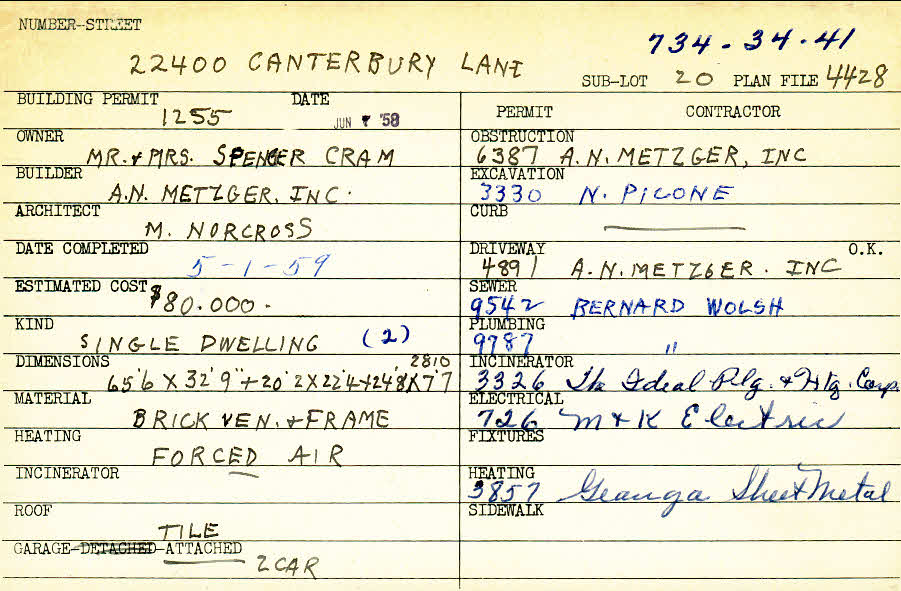 NUMBER-STREET
734-34-41
22400 CANTERBURY LANE
SUB-LOT 20 PLAN FILE 4428
BUILDING PERMIT DATE
1255 JUN '58
OWNER
MR. & MRS. SPENCER CRAM
BUILDER
A.N. METZGER, INC.
ARCHITECT
M. NORCROSS
DATE COMPLETED
5-1-59
ESTIMATED COST
$80.000.
KIND
SINGLE DWELLING (2)
DIMENSIONS 2810
65'6 X 32'9" + 20'2 X 22'4 + 24'8 X 7'7
MATERIAL
BRICK VEN. & FRAME
HEATING
FORCED AIR
INCINERATOR
ROOF
TILE
GARAGE-DETACHED-ATTACHED
2 CAR
PERMIT CONTRACTOR
OBSTRUCTION
6387 A.N. METZGER, INC
EXCAVATION
3330 N. PICONE
CURB
DRIVEWAY O.K.
4891 A.N. METZGER. INC
SEWER
9542 BERNARD WOLSH
PLUMBING
9787 "
INCINERATOR
3326 The Ideal Plg. & Htg. Corp.
ELECTRICAL
726 M & K Electric
FIXTURES
HEATING
3857 Geauga Sheet Metal
SIDEWALK